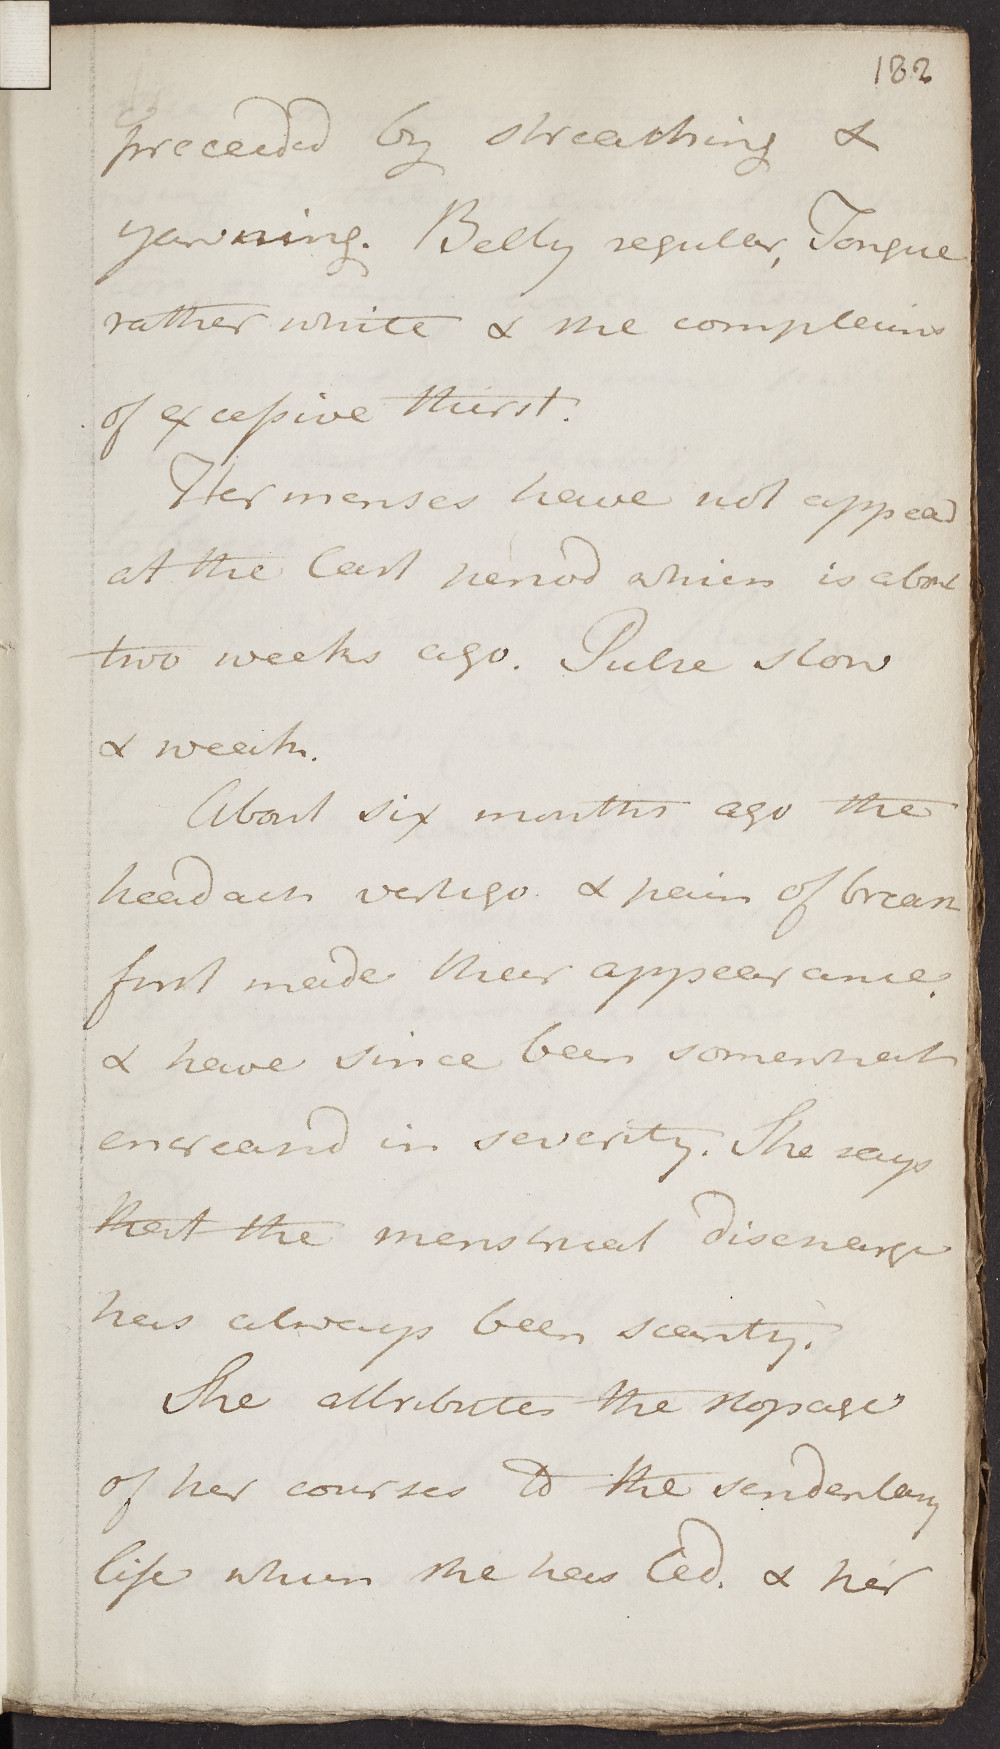 182
preceeded by streatching &
yawning. Belly regular, Tongue
rather white & she complains
of excessive thirst.
Her menses have not appead
at the last period which is about
two weeks ago. Pulse slow
& weak.
About six months ago the
headach vertigo & pain of breast
first made their appearance.
& have since been somewhat
encreasd in severity. She says
that the menstrual discharge
has always been scanty.
She attributes the stopage
of her courses to the sendentary
life which she has led. & her